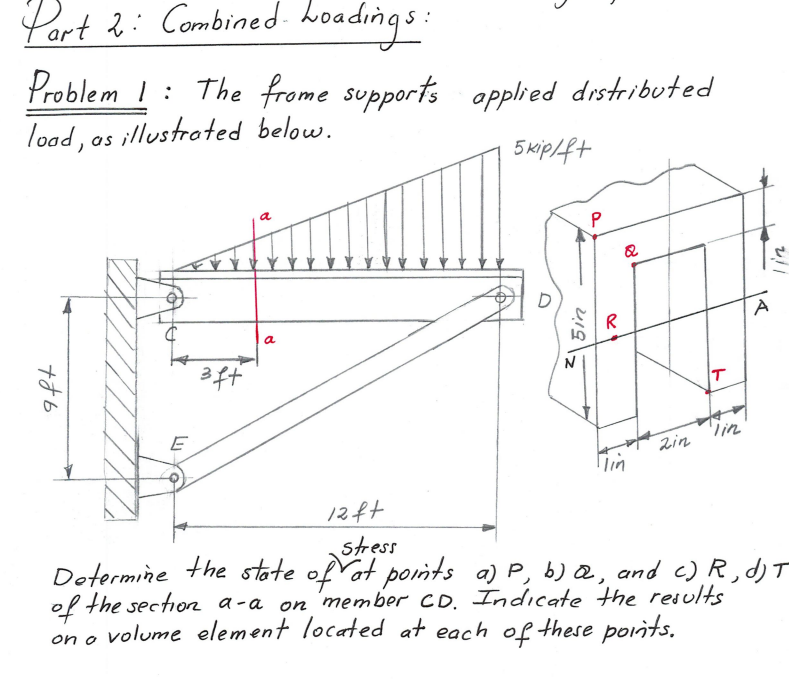 Part 2: Combined Loadings:
Problem 1: The frame supports applied distributed
load, as illustrated below.
5 kip/ft
a
P
Q
1 in
D
5 in
A
C
R
a
N
3 ft
9 ft
T
E
1 in
2 in
1 in
12 ft
stress
Determine the state of at points a) P, b) Q, and c) R, d) T
of the section a-a on member CD. Indicate the results
on a volume element located at each of these points.